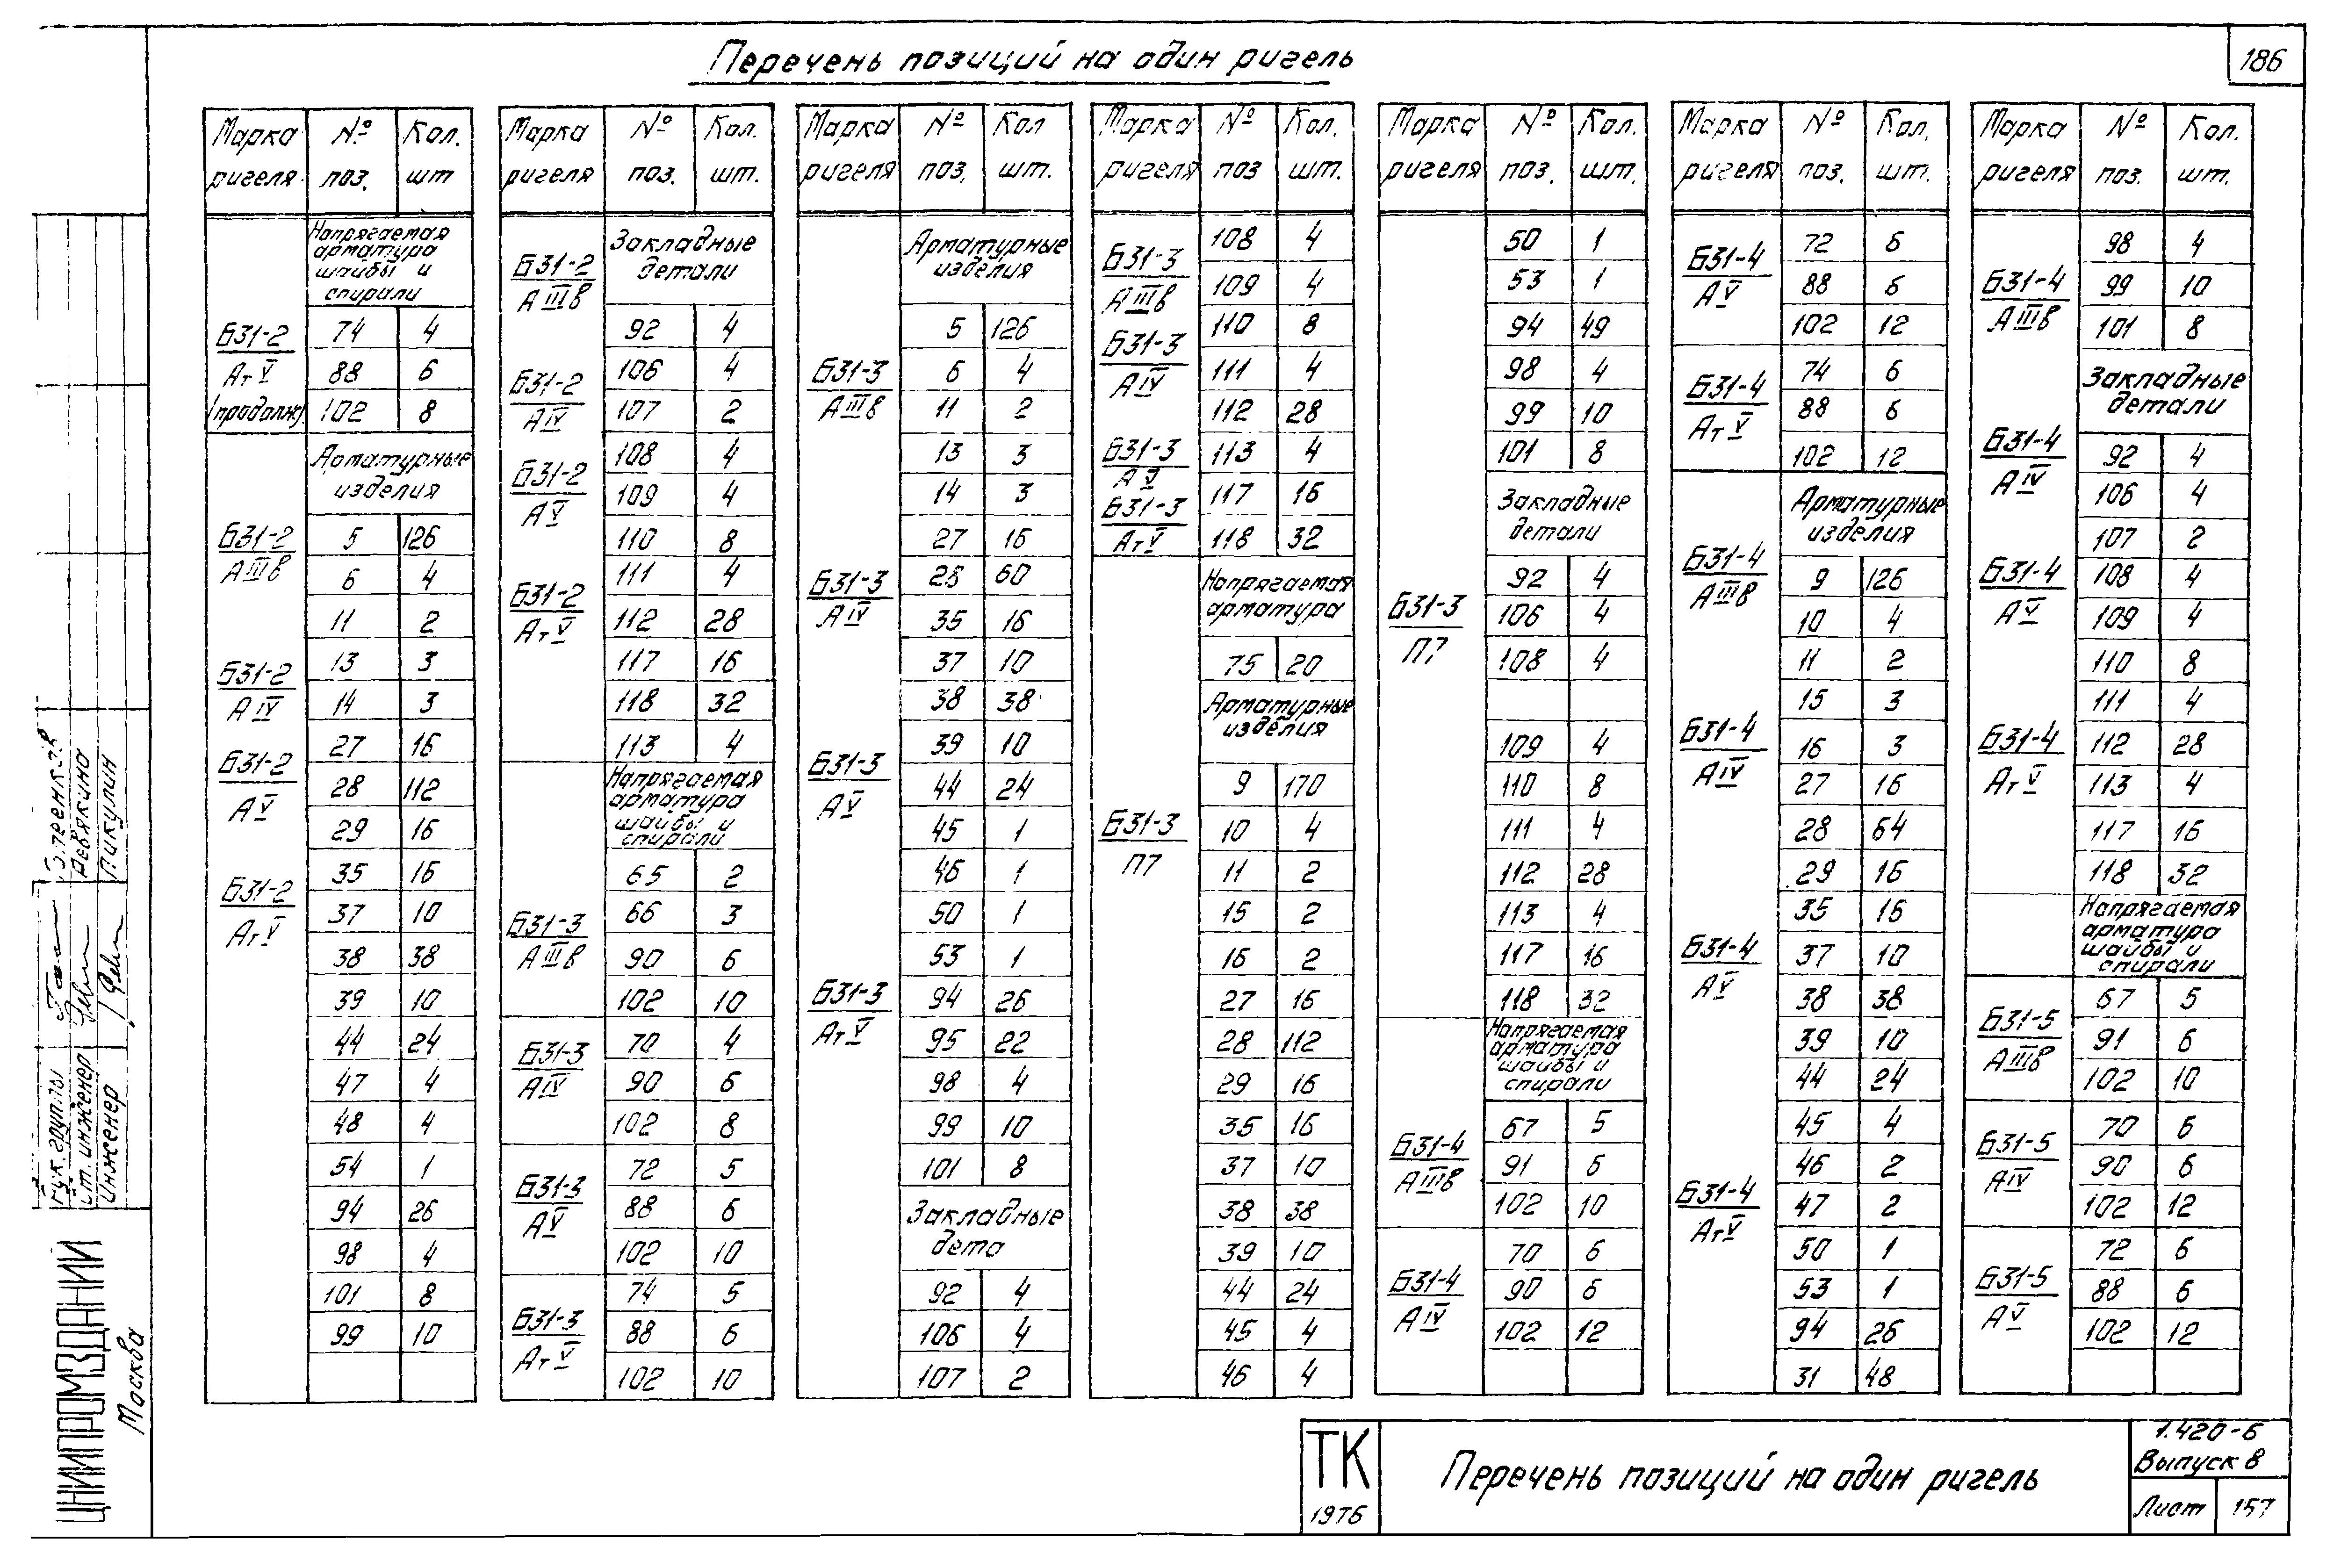 Перечень позиций на один ригель
186
Марка ригеля № поз. Кол. шт
Напрягаемая
арматура
шайбы и
спирали
Б31-2
Ат V
(продолж)
74 4
88 6
102 8
Арматурные
изделия
Б31-2
А IIIв
Б31-2
А IV
Б31-2
А V
Б31-2
Ат V
5 126
6 4
11 2
13 3
14 3
27 16
28 112
29 16
35 16
37 10
38 38
39 10
44 24
47 4
48 4
54 1
94 26
98 4
101 8
99 10
Марка ригеля № поз. Кол. шт.
Б31-2
А IIIв
Б31-2
А IV
Б31-2
А V
Б31-2
Ат V
Закладные
детали
92 4
106 4
107 2
108 4
109 4
110 8
111 4
112 28
117 16
118 32
113 4
Напрягаемая
арматура
шайбы и
спирали
Б31-3
А IIIв
65 2
66 3
90 6
102 10
Б31-3
А IV
70 4
90 6
102 8
Б31-3
А V
72 5
88 6
102 10
Б31-3
Ат V
74 5
88 6
102 10
Марка ригеля № поз. Кол шт.
Арматурные
изделия
Б31-3
А IIIв
Б31-3
А IV
Б31-3
А V
Б31-3
Ат V
5 126
6 4
11 2
13 3
14 3
27 16
28 60
35 16
37 10
38 38
39 10
44 24
45 1
46 1
50 1
53 1
94 26
95 22
98 4
99 10
101 8
Закладные
дета
92 4
106 4
107 2
Марка ригеля № поз Кол. шт.
Б31-3
А IIIв
Б31-3
А IV
Б31-3
А V
Б31-3
Ат V
108 4
109 4
110 8
111 4
112 28
113 4
117 16
118 32
Напрягаемая
арматура
75 20
Арматурные
изделия
Б31-3
П7
9 170
10 4
11 2
15 2
16 2
27 16
28 112
29 16
35 16
37 10
38 38
39 10
44 24
45 4
46 4
Марка ригеля № поз. Кол. шт.
50 1
53 1
94 49
98 4
99 10
101 8
Закладные
детали
Б31-3
П7
92 4
106 4
108 4
109 4
110 8
111 4
112 28
113 4
117 16
118 32
Напрягаемая
арматура
шайбы и
спирали
Б31-4
А IIIв
67 5
91 6
102 10
Б31-4
А IV
70 6
90 6
102 12
Марка ригеля № поз. Кол. шт.
Б31-4
А V
72 6
88 6
102 12
Б31-4
Ат V
74 6
88 6
102 12
Арматурные
изделия
Б31-4
А IIIв
Б31-4
А IV
Б31-4
А V
Б31-4
Ат V
9 126
10 4
11 2
15 3
16 3
27 16
28 64
29 16
35 16
37 10
38 38
39 10
44 24
45 4
46 2
47 2
50 1
53 1
94 26
31 48
Марка ригеля № поз. Кол. шт.
Б31-4
А IIIв
Б31-4
А IV
Б31-4
А V
Б31-4
Ат V
98 4
99 10
101 8
Закладные
детали
92 4
106 4
107 2
108 4
109 4
110 8
111 4
112 28
113 4
117 16
118 32
Напрягаемая
арматура
шайбы и
спирали
Б31-5
А IIIв
67 5
91 6
102 10
Б31-5
А IV
70 6
90 6
102 12
Б31-5
А V
72 6
88 6
102 12
Рук. группы
Ст. инженер Девякина
Инженер Пикулин
ЦНИИПРОМЗДАНИЙ
Москва
ТК
1976
Перечень позиций на один ригель
1.420-6
Выпуск 8
Лист 157